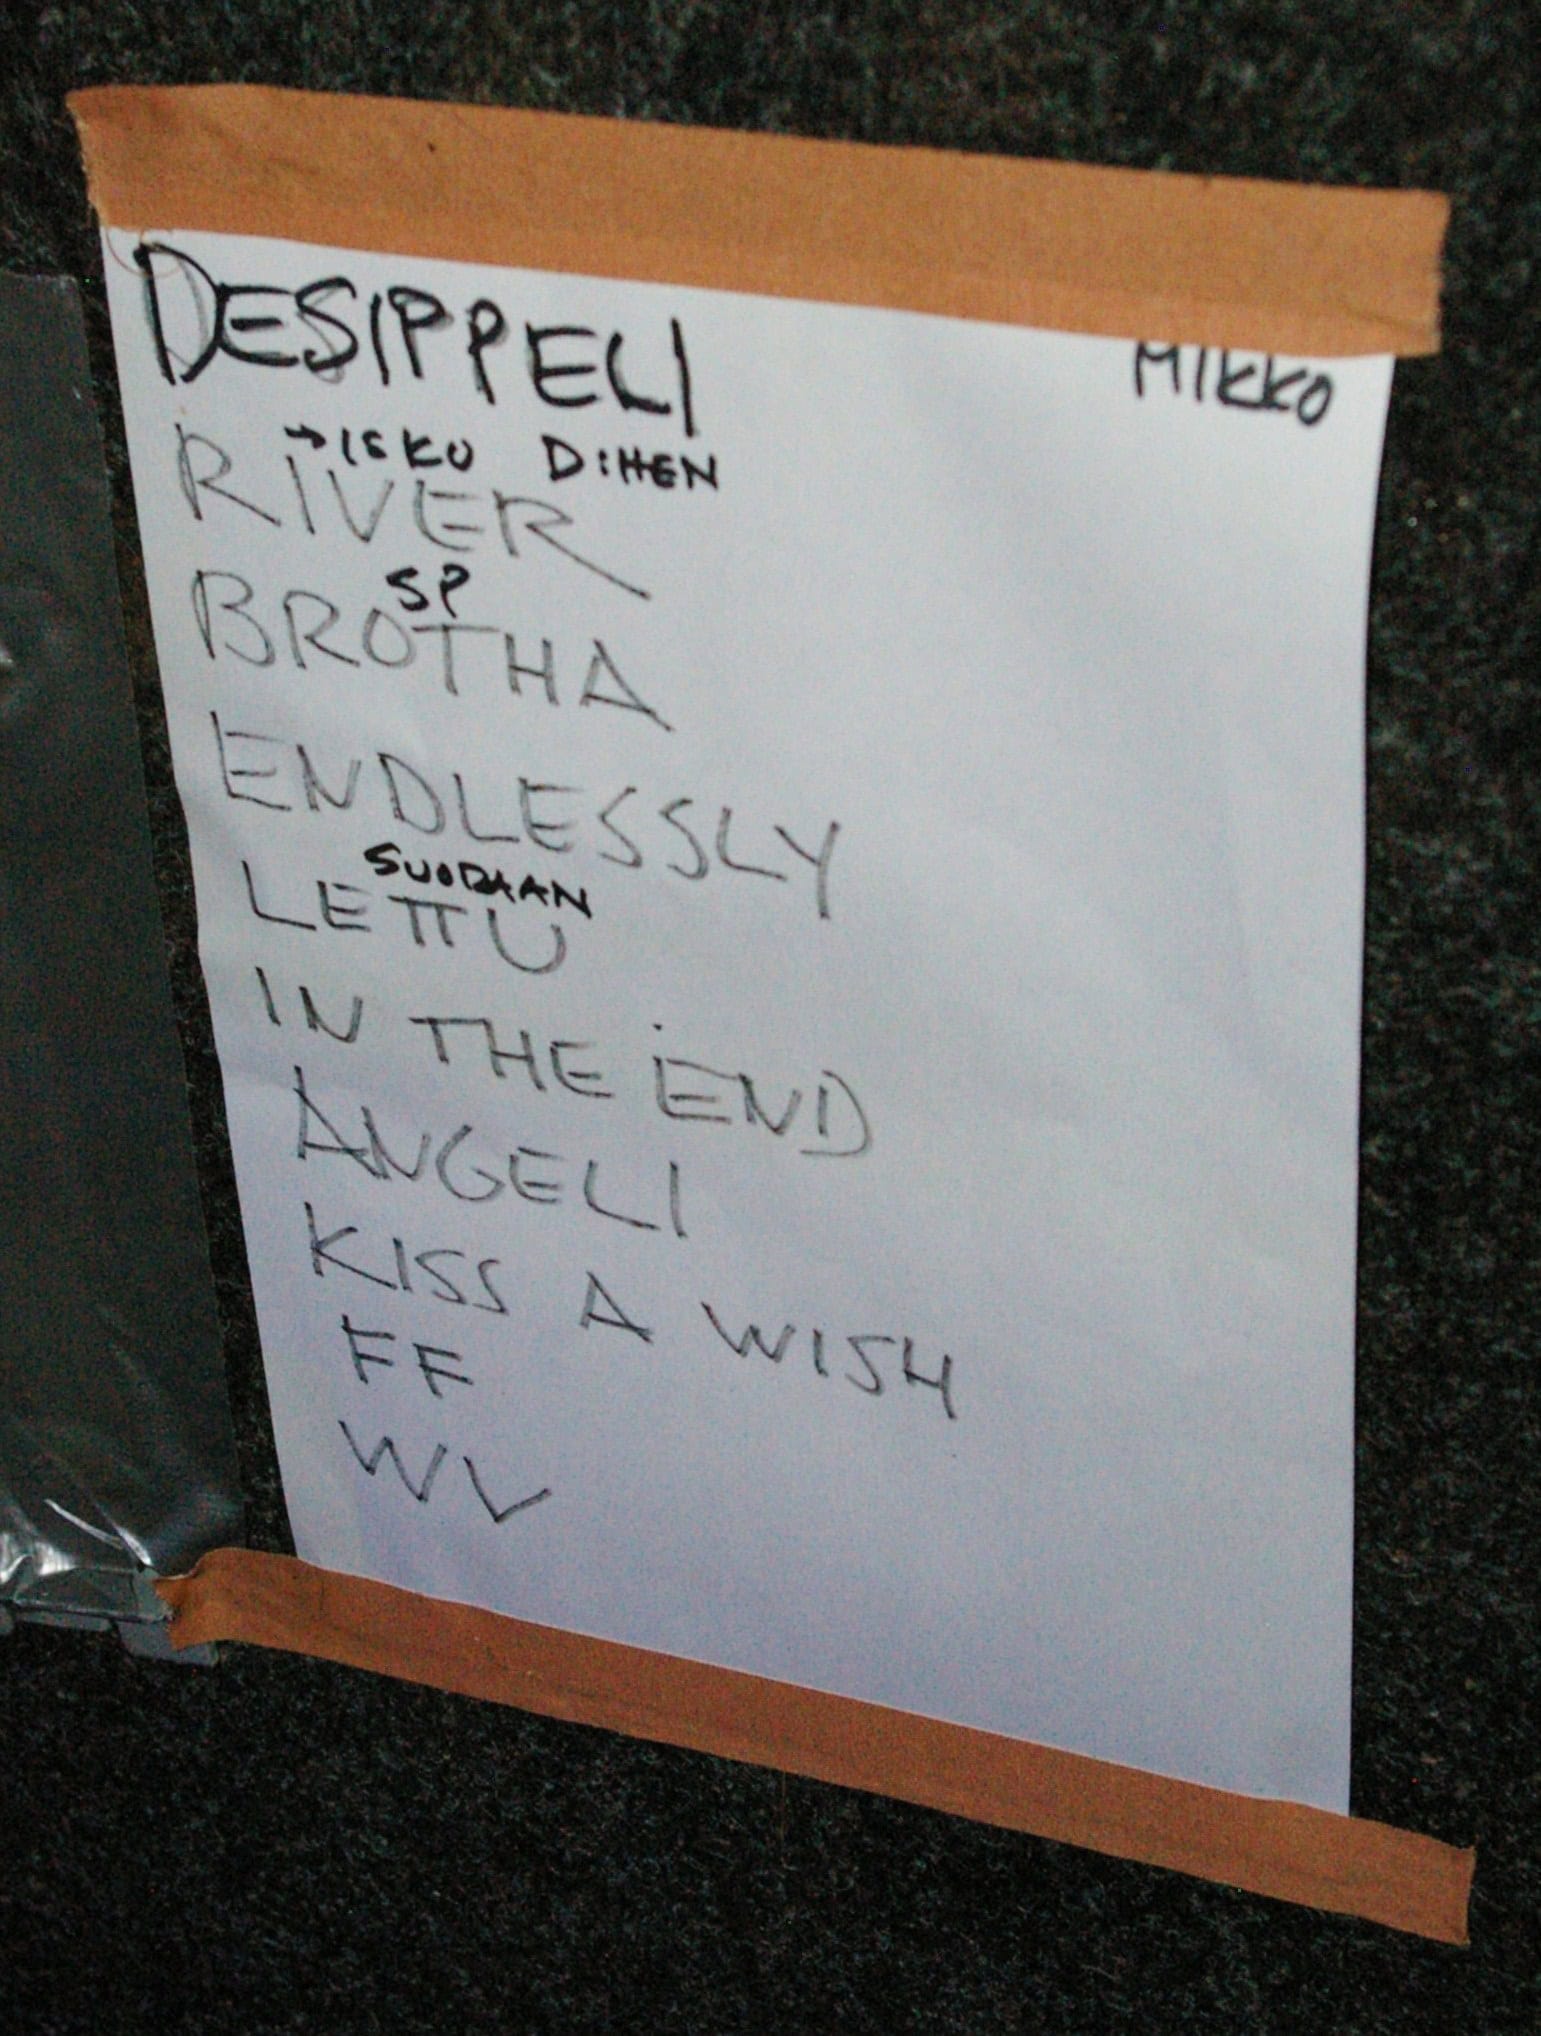 DESIPPELI
MIKKO
→ISKU DIHEN
RIVER
SP
BROTHA
ENDLESSLY
SUODAAN
LETTU
IN THE END
ANGELI
KISS A WISH
FF
WV